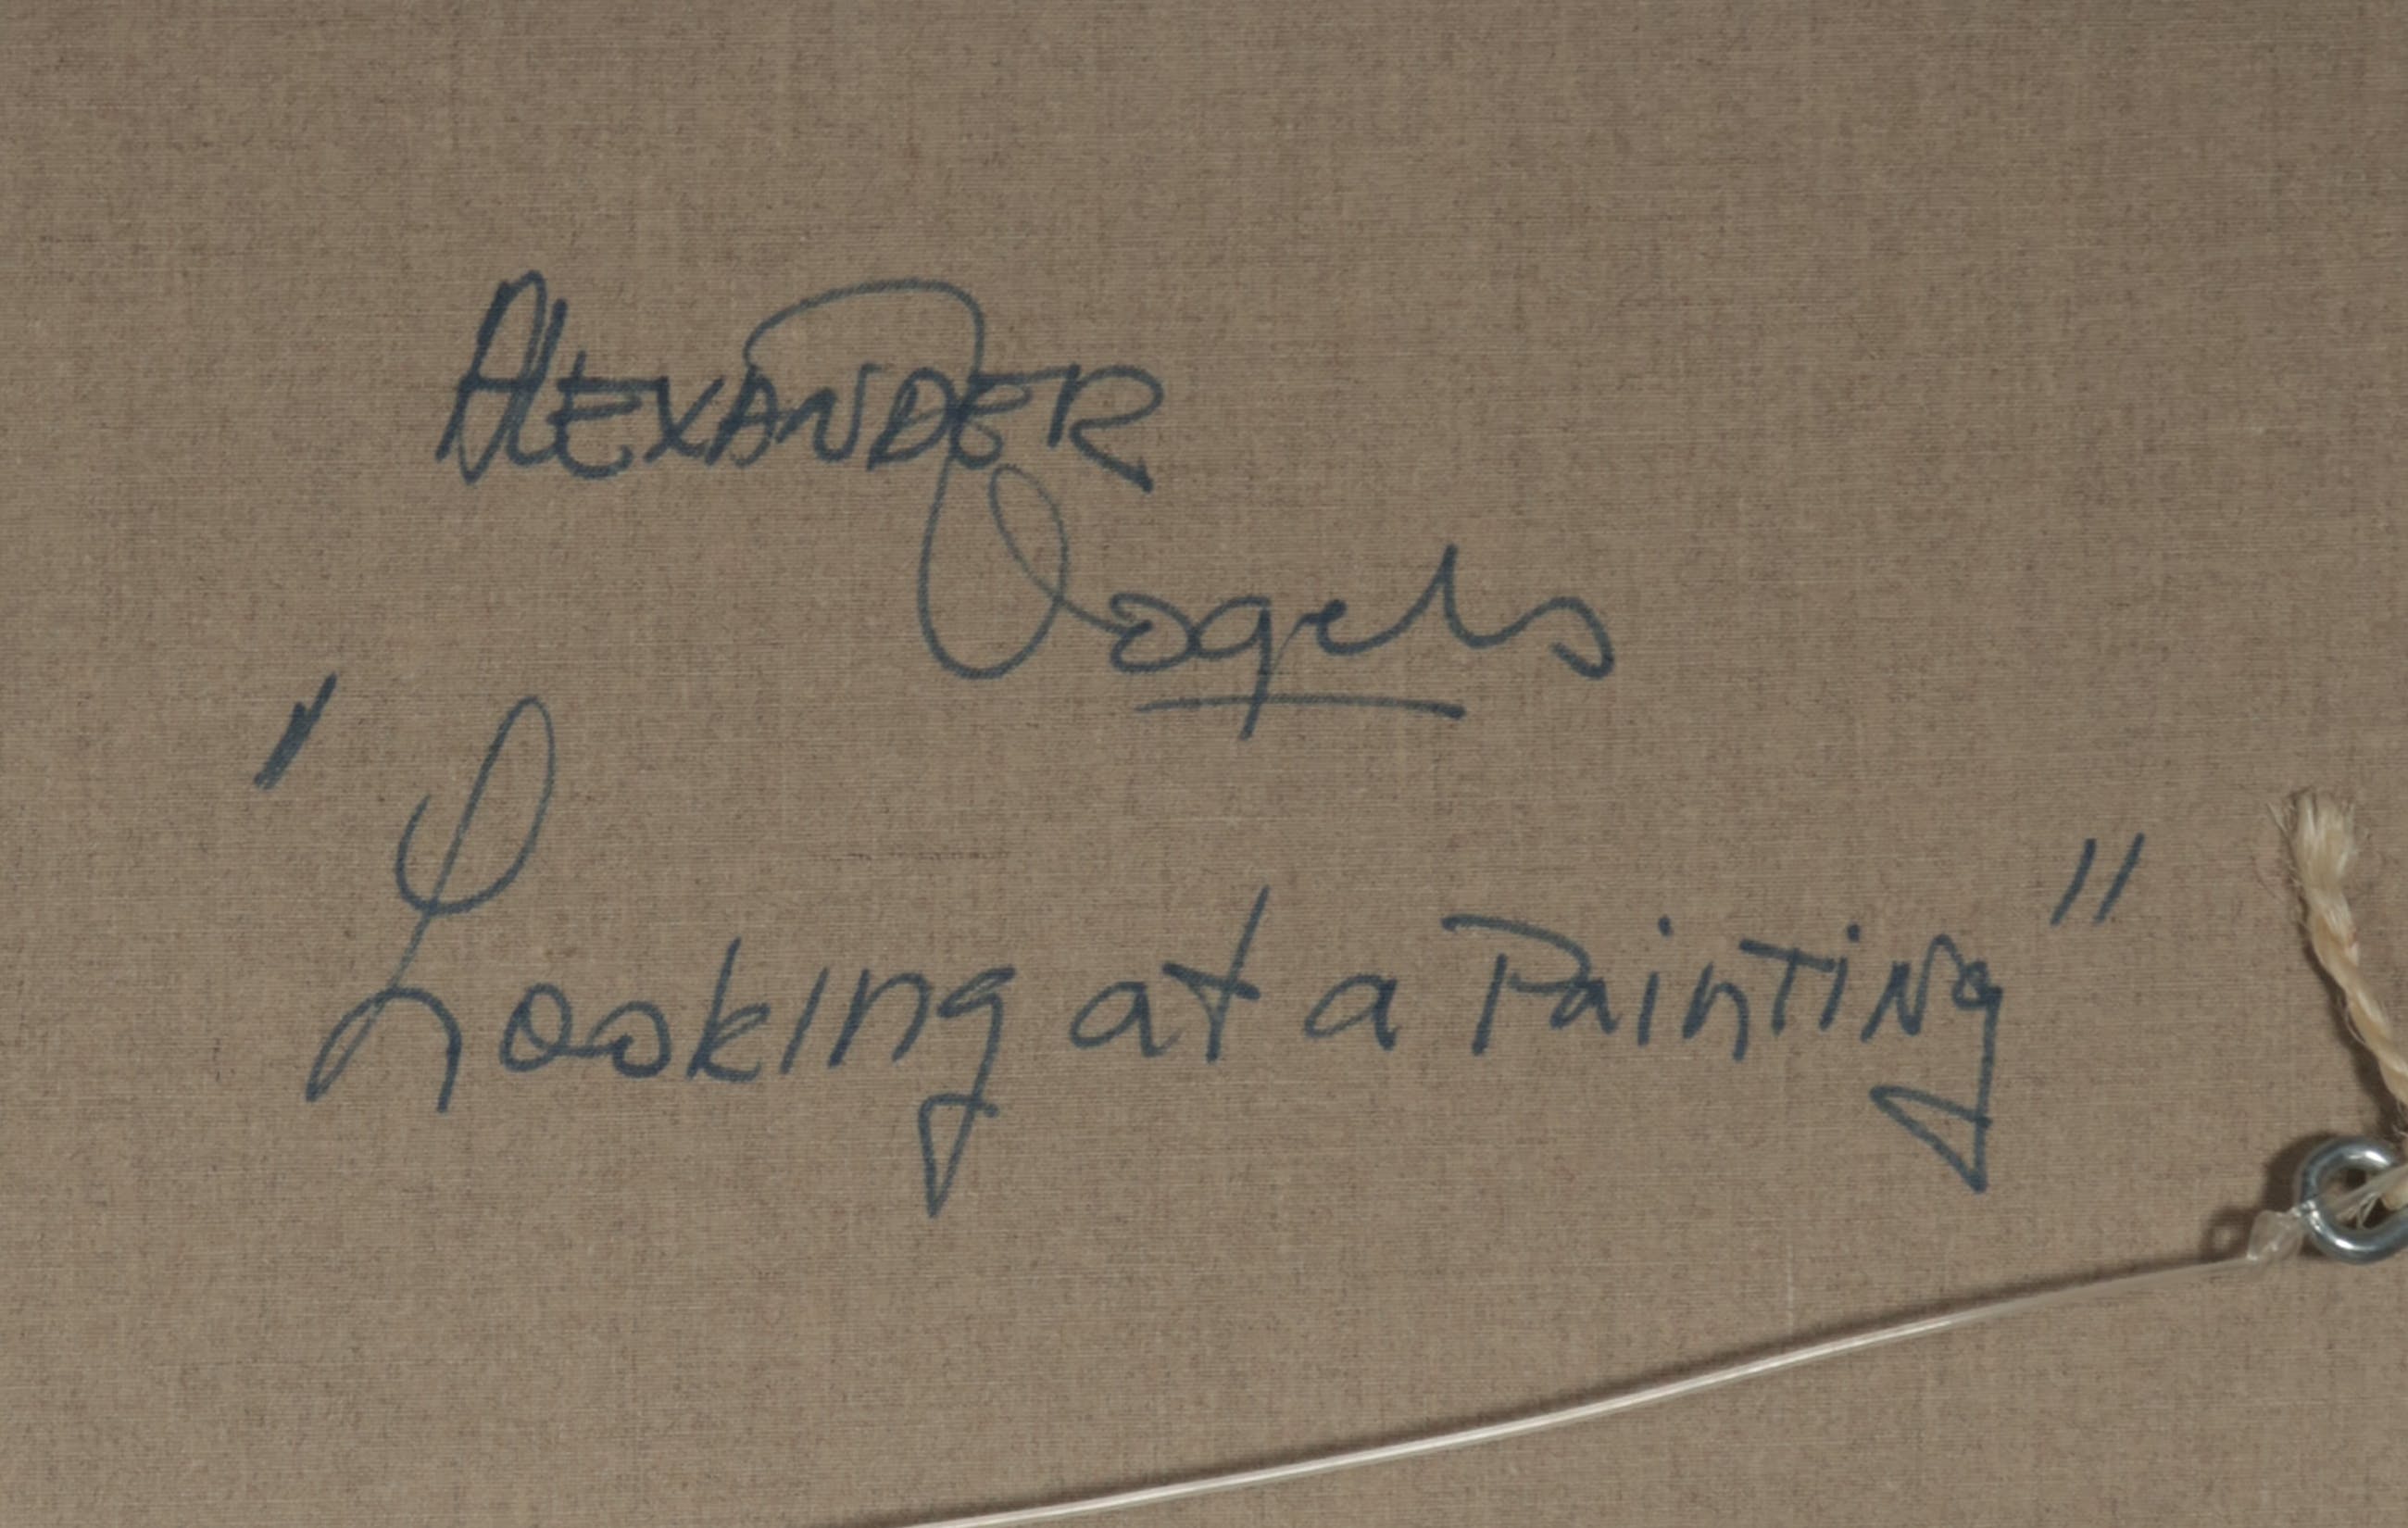 ALEXANDER
Vogels
"Looking at a Painting"